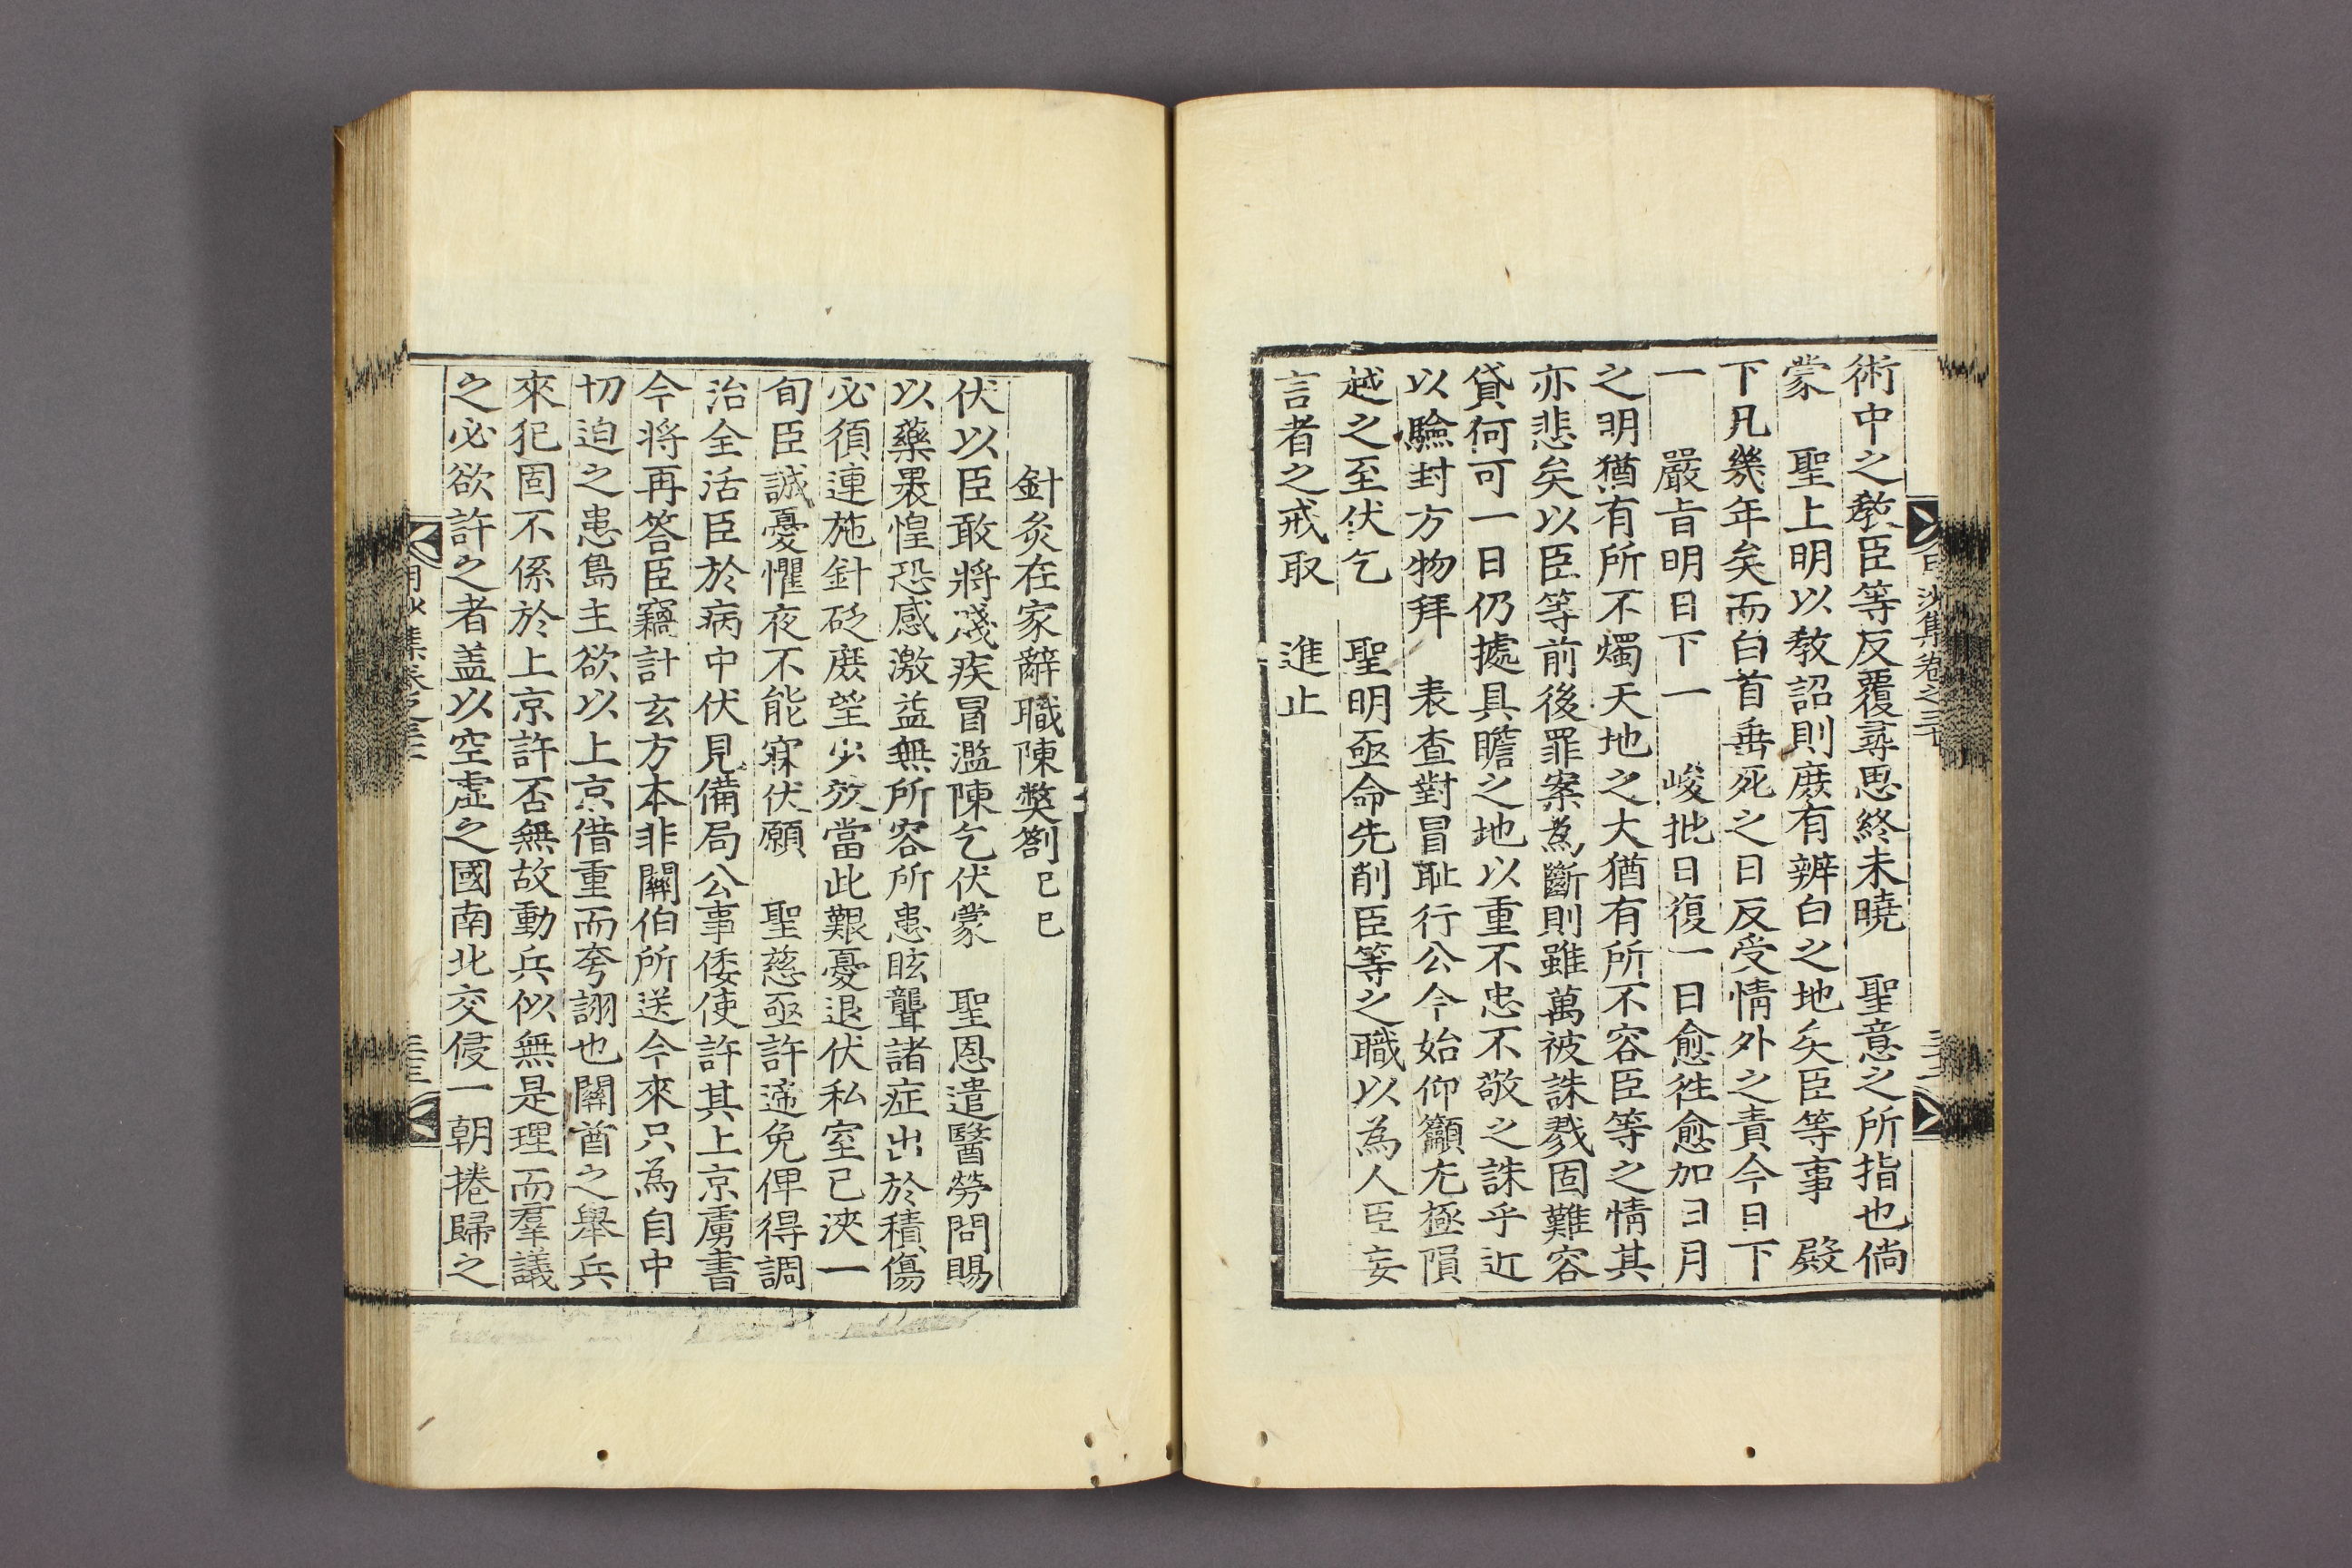 術中之教臣等反覆尋思終未曉　聖意之所指也倘
蒙　聖上明以教詔則庶有辨白之地矣臣等事　殿
下凡幾年矣而白首垂死之日反受情外之責今日下
一　嚴旨明日下一　峻批日復一日愈徃愈加日月
之明猶有所不燭天地之大猶有所不容臣等之情其
亦悲矣以臣等前後罪案爲斷則雖萬被誅戮固難容
貸何可一日仍據具瞻之地以重不忠不敬之誅乎近
以驗封方物拜　表查對冒恥行公今始仰籲尤極隕
越之至伏乞　聖明亟命先削臣等之職以為人臣妄
言者之戒取　進止
針灸在家辭職陳獘劄己巳
伏以臣敢將賤疾冒濫陳乞伏蒙　聖恩遣醫勞問賜
以藥裹惶恐感激益無所容所患眩聾諸症出於積傷
必須連施針砭庶望少效當此艱憂退伏私室已浹一
旬臣誠憂懼夜不能寐伏願　聖慈亟許遞免俾得調
治全活臣於病中伏見備局公事倭使許其上京虜書
今將再答臣竊計玄方本非關伯所送今來只為自中
切迫之患島主欲以上京借重而夸詡也關酋之舉兵
來犯固不係於上京許否無故動兵似無是理而羣議
之必欲許之者盖以空虛之國南北交侵一朝捲歸之